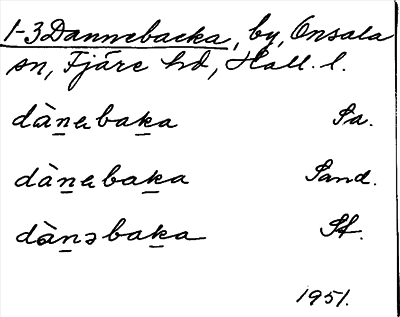 1-3 Dannebacka, by, Onsala
sn, Fjäre hd, Hall. l.
dànebaka Sa.
dànebaka Sand.
dànəbaka Sf.
1951.